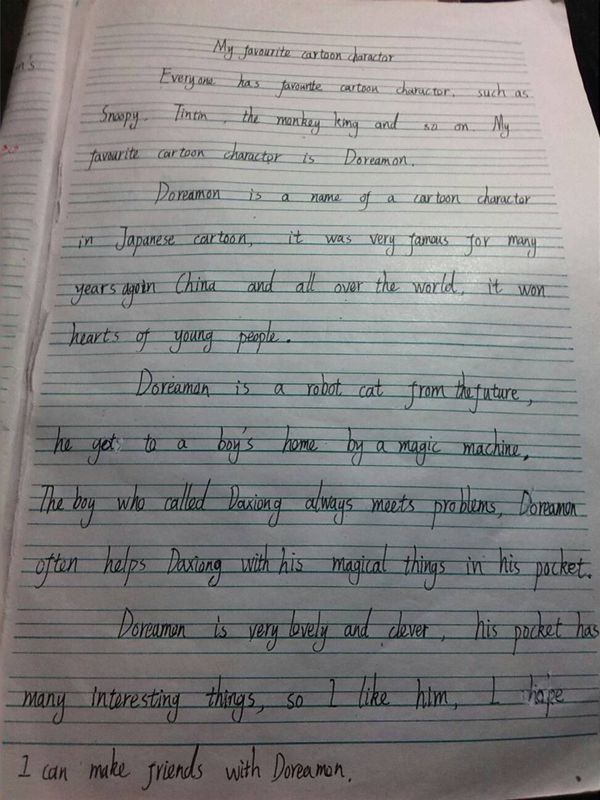 My favourite cartoon charactor
Everyone has favourite cartoon charactor, such as
Snoopy. Tintin, the monkey king and so on. My
favourite cartoon charactor is Doreamon.
Doreamon is a name of a cartoon charactor
in Japanese cartoon, it was very famous for many
years ago in China and all over the world, it won
hearts of young people.
Doreamon is a robot cat from the future,
he got to a boy's home by a magic machine,
The boy who called Daxiong always meets problems, Doreamon
often helps Daxiong with his magical things in his pocket.
Doreamon is very lovely and clever, his pocket has
many interesting things, so I like him, I hope
I can make friends with Doreamon.